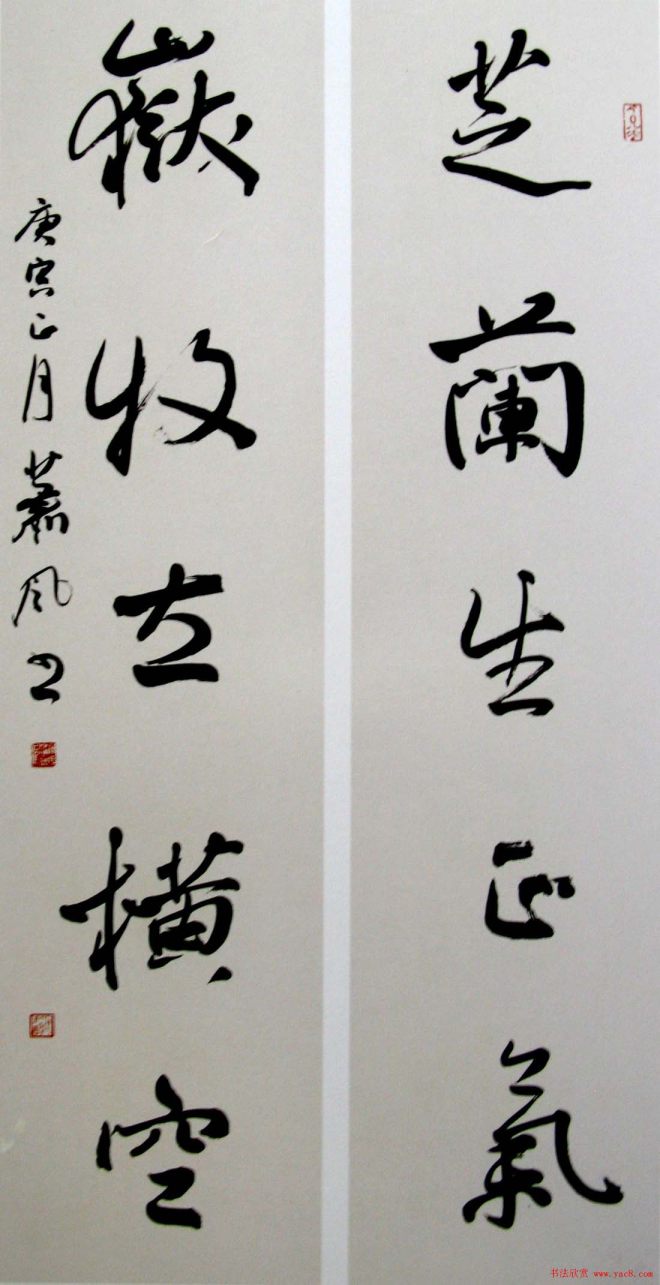 芝蘭生正氣
嶽牧立橫空
庚寅正月蕭风书
书法欣赏 www.yac8.com